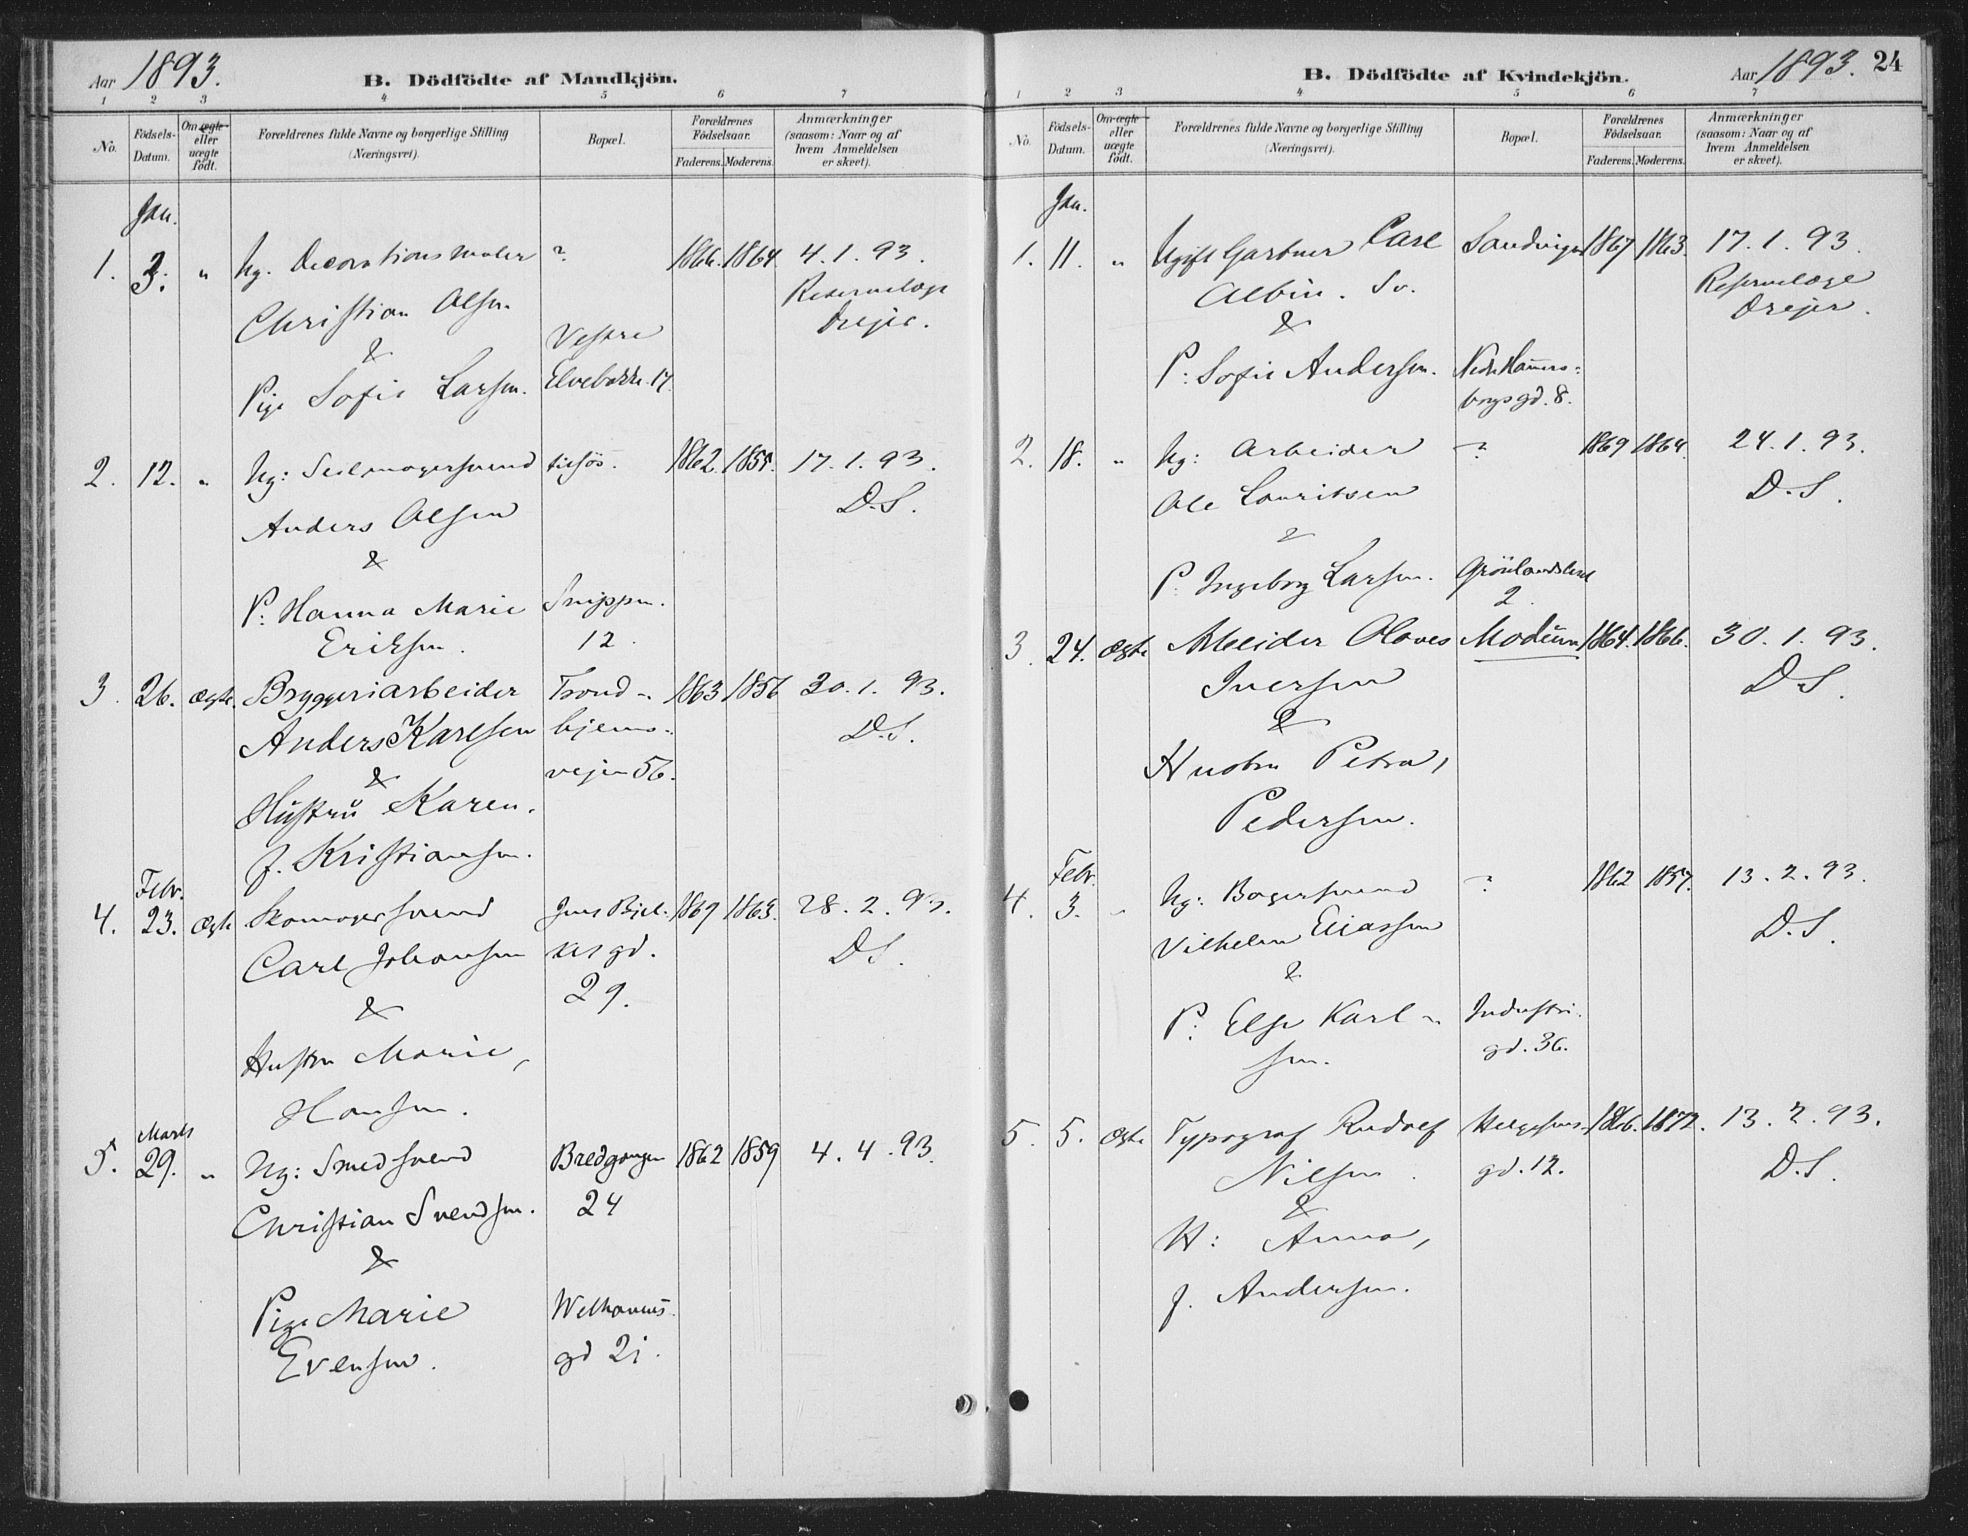 Aar 1893.
B. Dödfödte af Mandkjön.
1 2 3 4 5 6 7
No.
Födsels-Datum.
Om ægte eller uægte födt.
Forældrenes fulde Navne og borgerlige Stilling (Næringsvei).
Bopæl.
Forældrenes Födselsaar.
Faderens. Moderens.
Anmærkninger (saasom: Naar og af hvem Anmeldelsen er skeet).
Jan.
1. 3. " Ug. Decorationsmaler ? 1866. 1864. 4.1.93.
Christian Olsen Reservelæge
& Drejer.
Vestre
Pige Sofie Larsen. Elvebakke 17.
2. 12. " Ug: Seilmagersvend tilsjøs. 1862. 1855. 17.1.93.
Anders Olsen D.S.
&
P: Hanna Marie Snippen.
Eriksen. 12.
3. 26. Ægte. Bryggeriarbeider Trond- 1863 1856 30.1.93.
Anders Karlsen hjems- D.S.
& vejen 56.
Hustru Karen.
f. Kristiansen.
Febr.
4. 23. Ægte Skomagersvend Jens Bjel- 1869 1863. 28.2.93.
Carl Johansen kes gd. D.S.
& 29.
Hustru Marie,
Hansen.
Marts
5. 29. " Ug: Smedsvend Bredgangen 1862 1859 4.4.93.
Christian Svendsen. 24
&
Pige Marie Welhavens
Evensen. gd 21.
B. Dödfödte af Kvindekjön.
Aar 1893. 24
1 2 3 4 5 6 7
No.
Födsels-Datum.
Om ægte eller uægte födt.
Forældrenes fulde Navne og borgerlige Stilling (Næringsvei).
Bopæl.
Forældrenes Födselsaar.
Faderens. Moderens.
Anmærkninger (saasom: Naar og af hvem Anmeldelsen er skeet).
Jan.
1. 11. " Ugift Gartner Carl Sandvigen 1867 1863. 17.1.93.
Albin. Sv. Reservelæge
& Drejer.
P: Sofie Andersen. Nedre Hammers-
borgs gd. 8.
2. 18. " Ug: Arbeider ? 1869 1864. 24.1.93.
Ole Lauritsen D.S.
&
P. Ingeborg Larsen. Grönlandsleret
2
3. 24. Ægte Arbeider Olaves Modum 1864. 1866. 30.1.93.
Iversen D.S.
&
Hustru Petra,
Pedersen.
Febr.
4. 3. " Ug: Bagersvend ? 1862 1857. 13.2.93.
Vilhelm Eliassen D.S.
&
P: Else Karl- Industri.
sen. gd. 36.
5. 5. Ægte Typograf Rudolf Helgesens 1866. 1872. 13.2.93.
Nilsen gd. 12. D.S.
&
H: Anna,
f. Andersen.